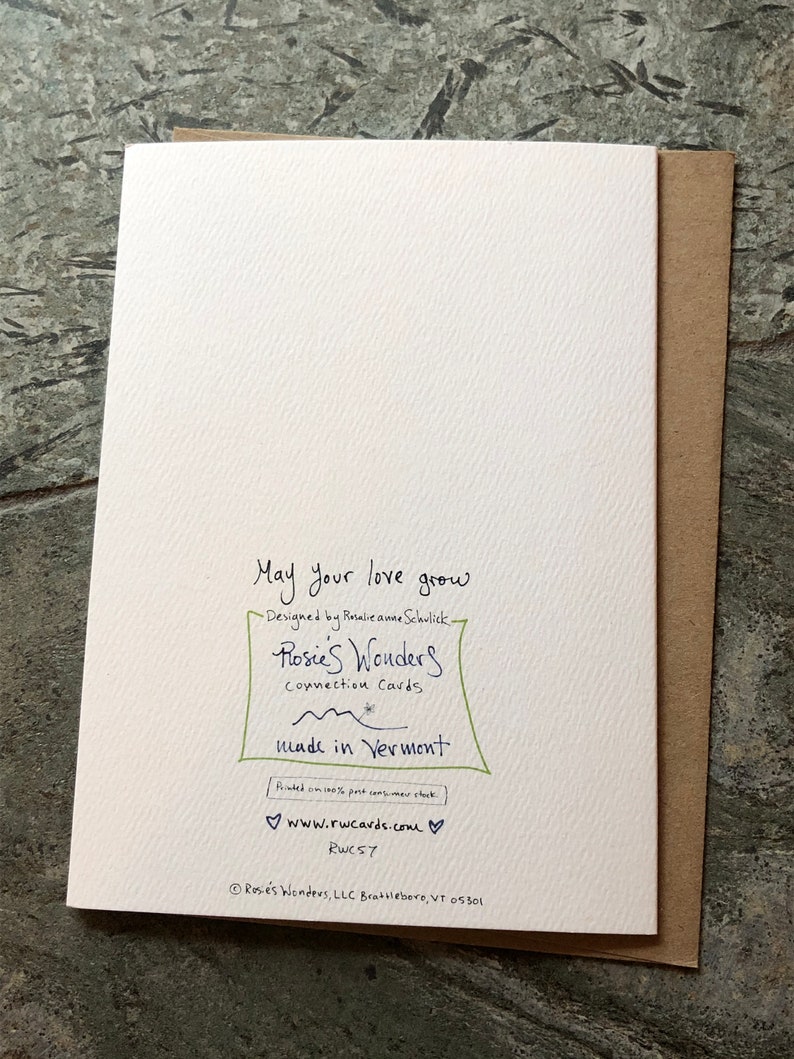 May your love grow
Designed by Rosalieanne Schulick
Rosie's Wonders
connection cards
made in Vermont
Printed on 100% post consumer stock.
www.rwcards.com
RWC57
© Rosie's Wonders, LLC Brattleboro, VT 05301